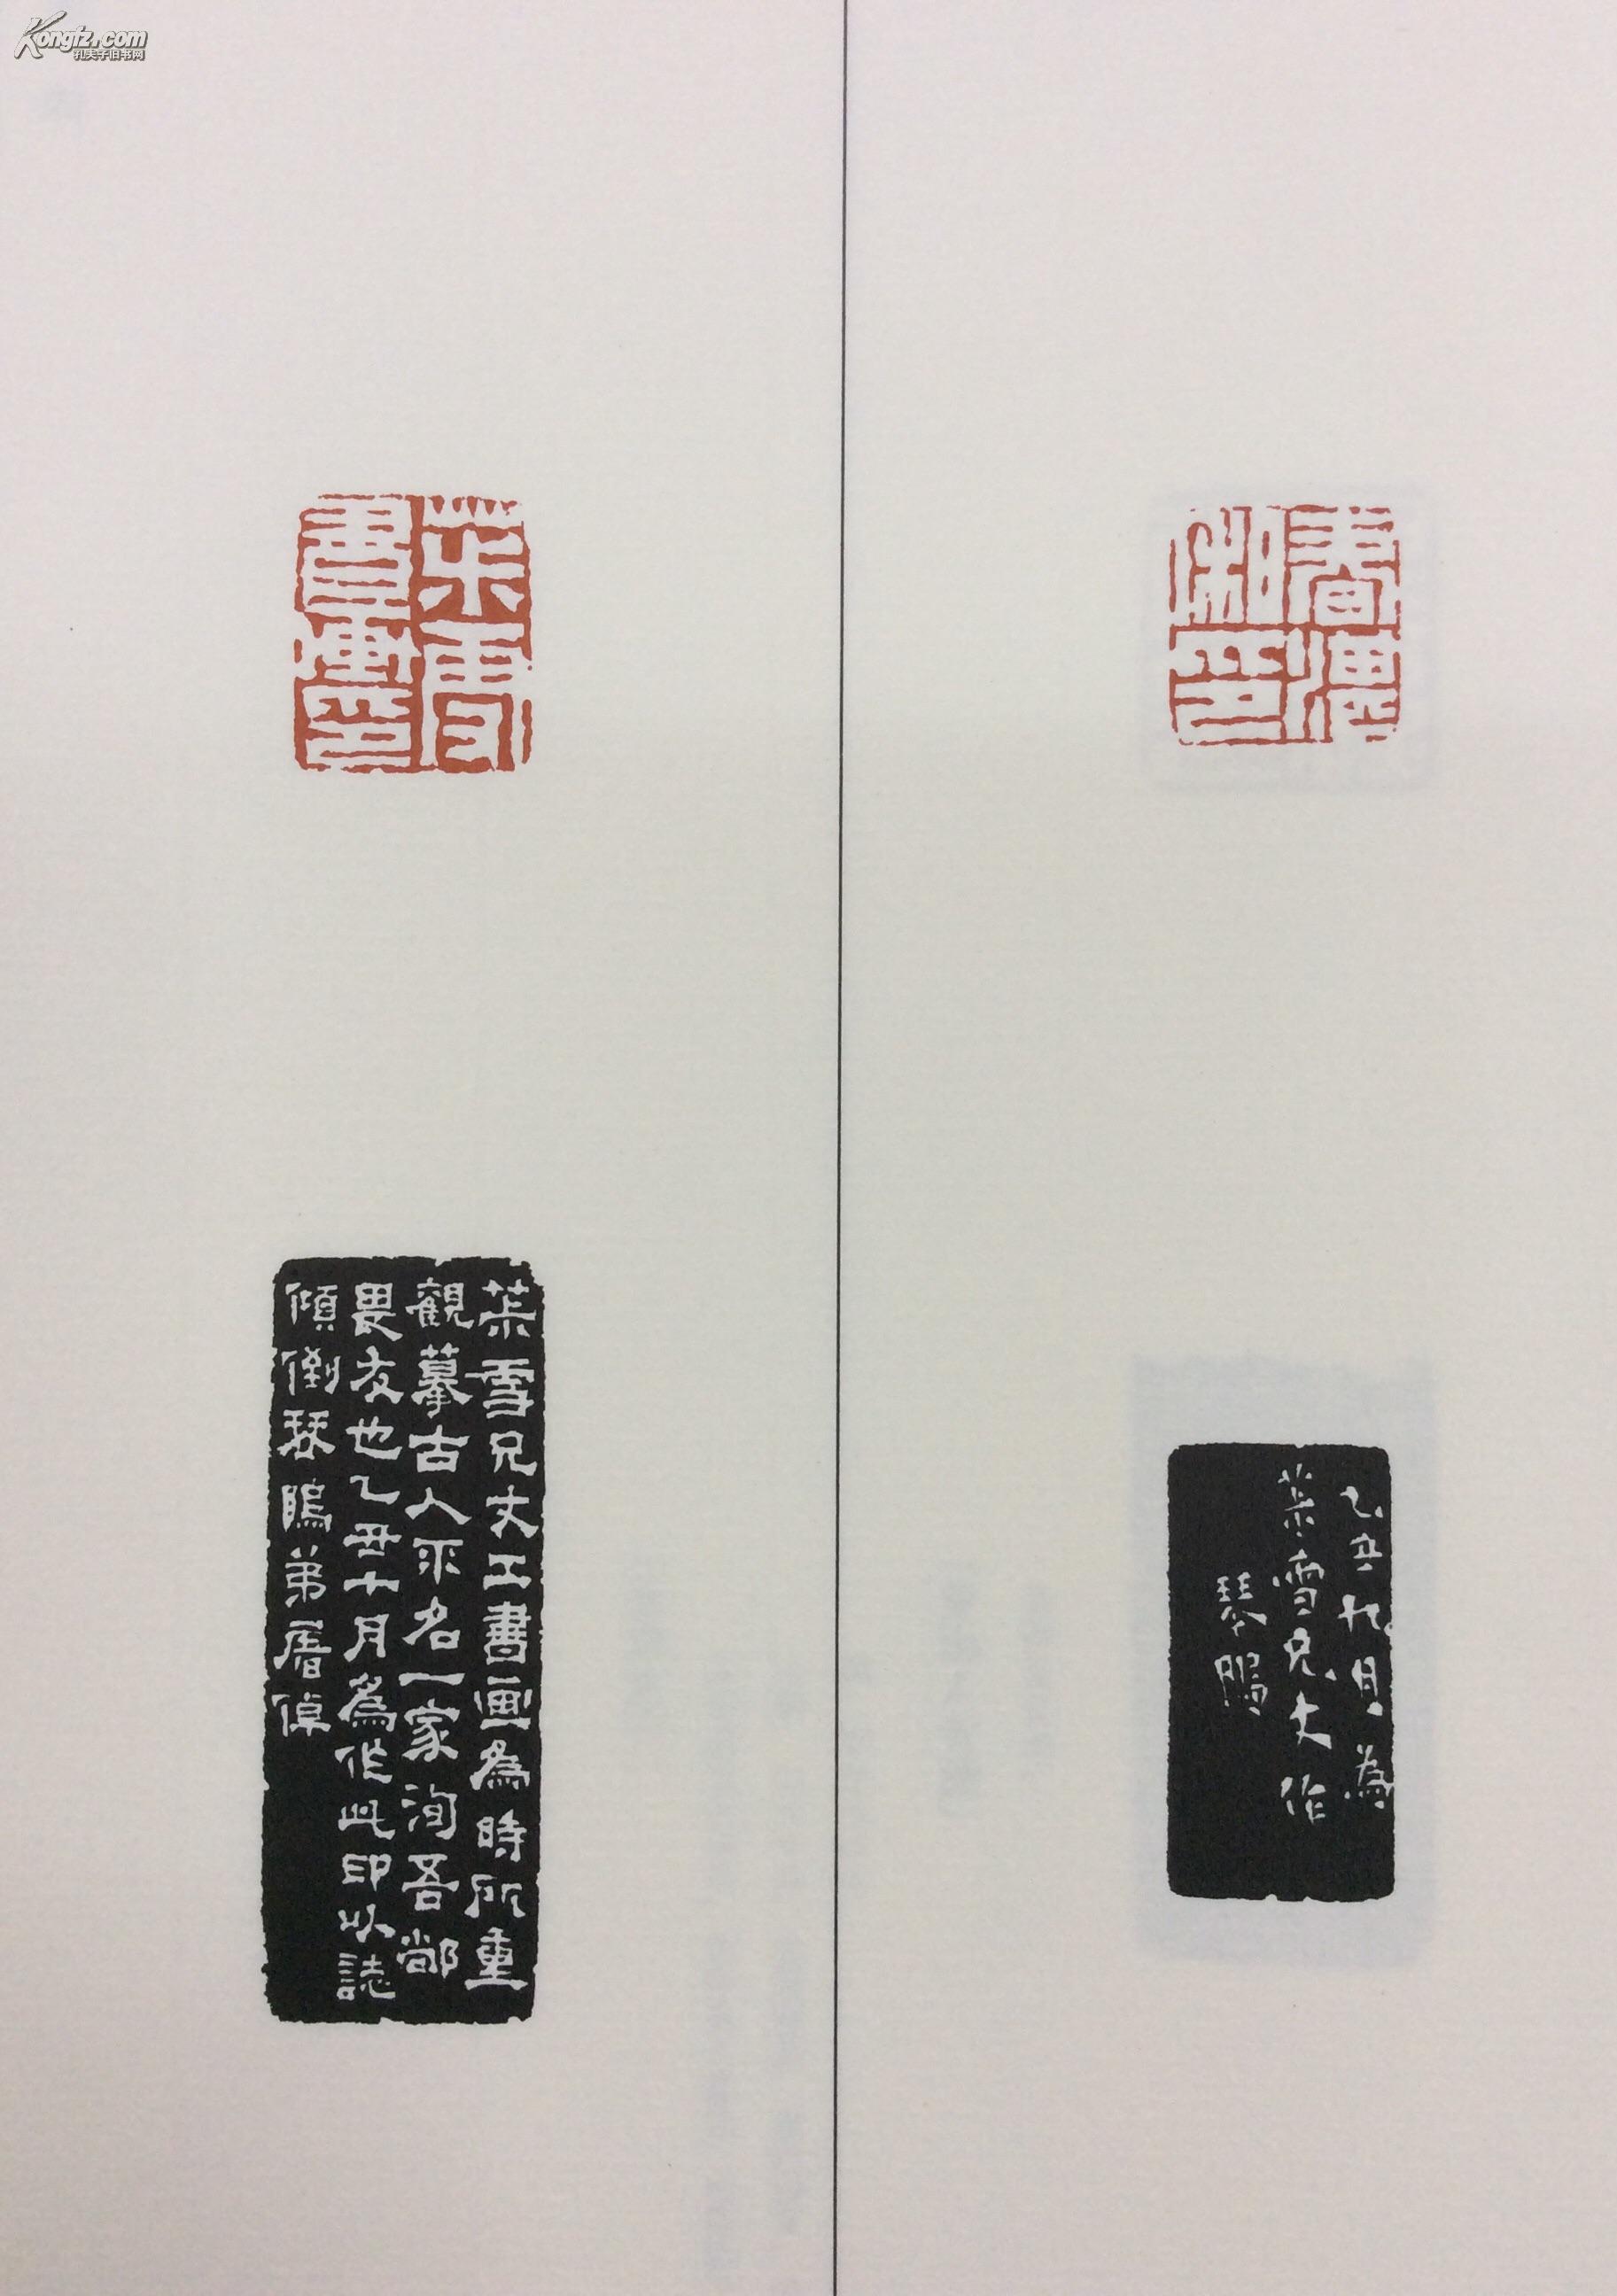 私印
乙九月為
雪兄丈作
琴隖
雪書畫印
雪兄丈工書画為時所重
觀摹古人名一家洵吾鄉
畏友也乙丑十月為作此印以誌
傾倒琹隖弟屠倬
Kongfz.com
孔夫子旧书网